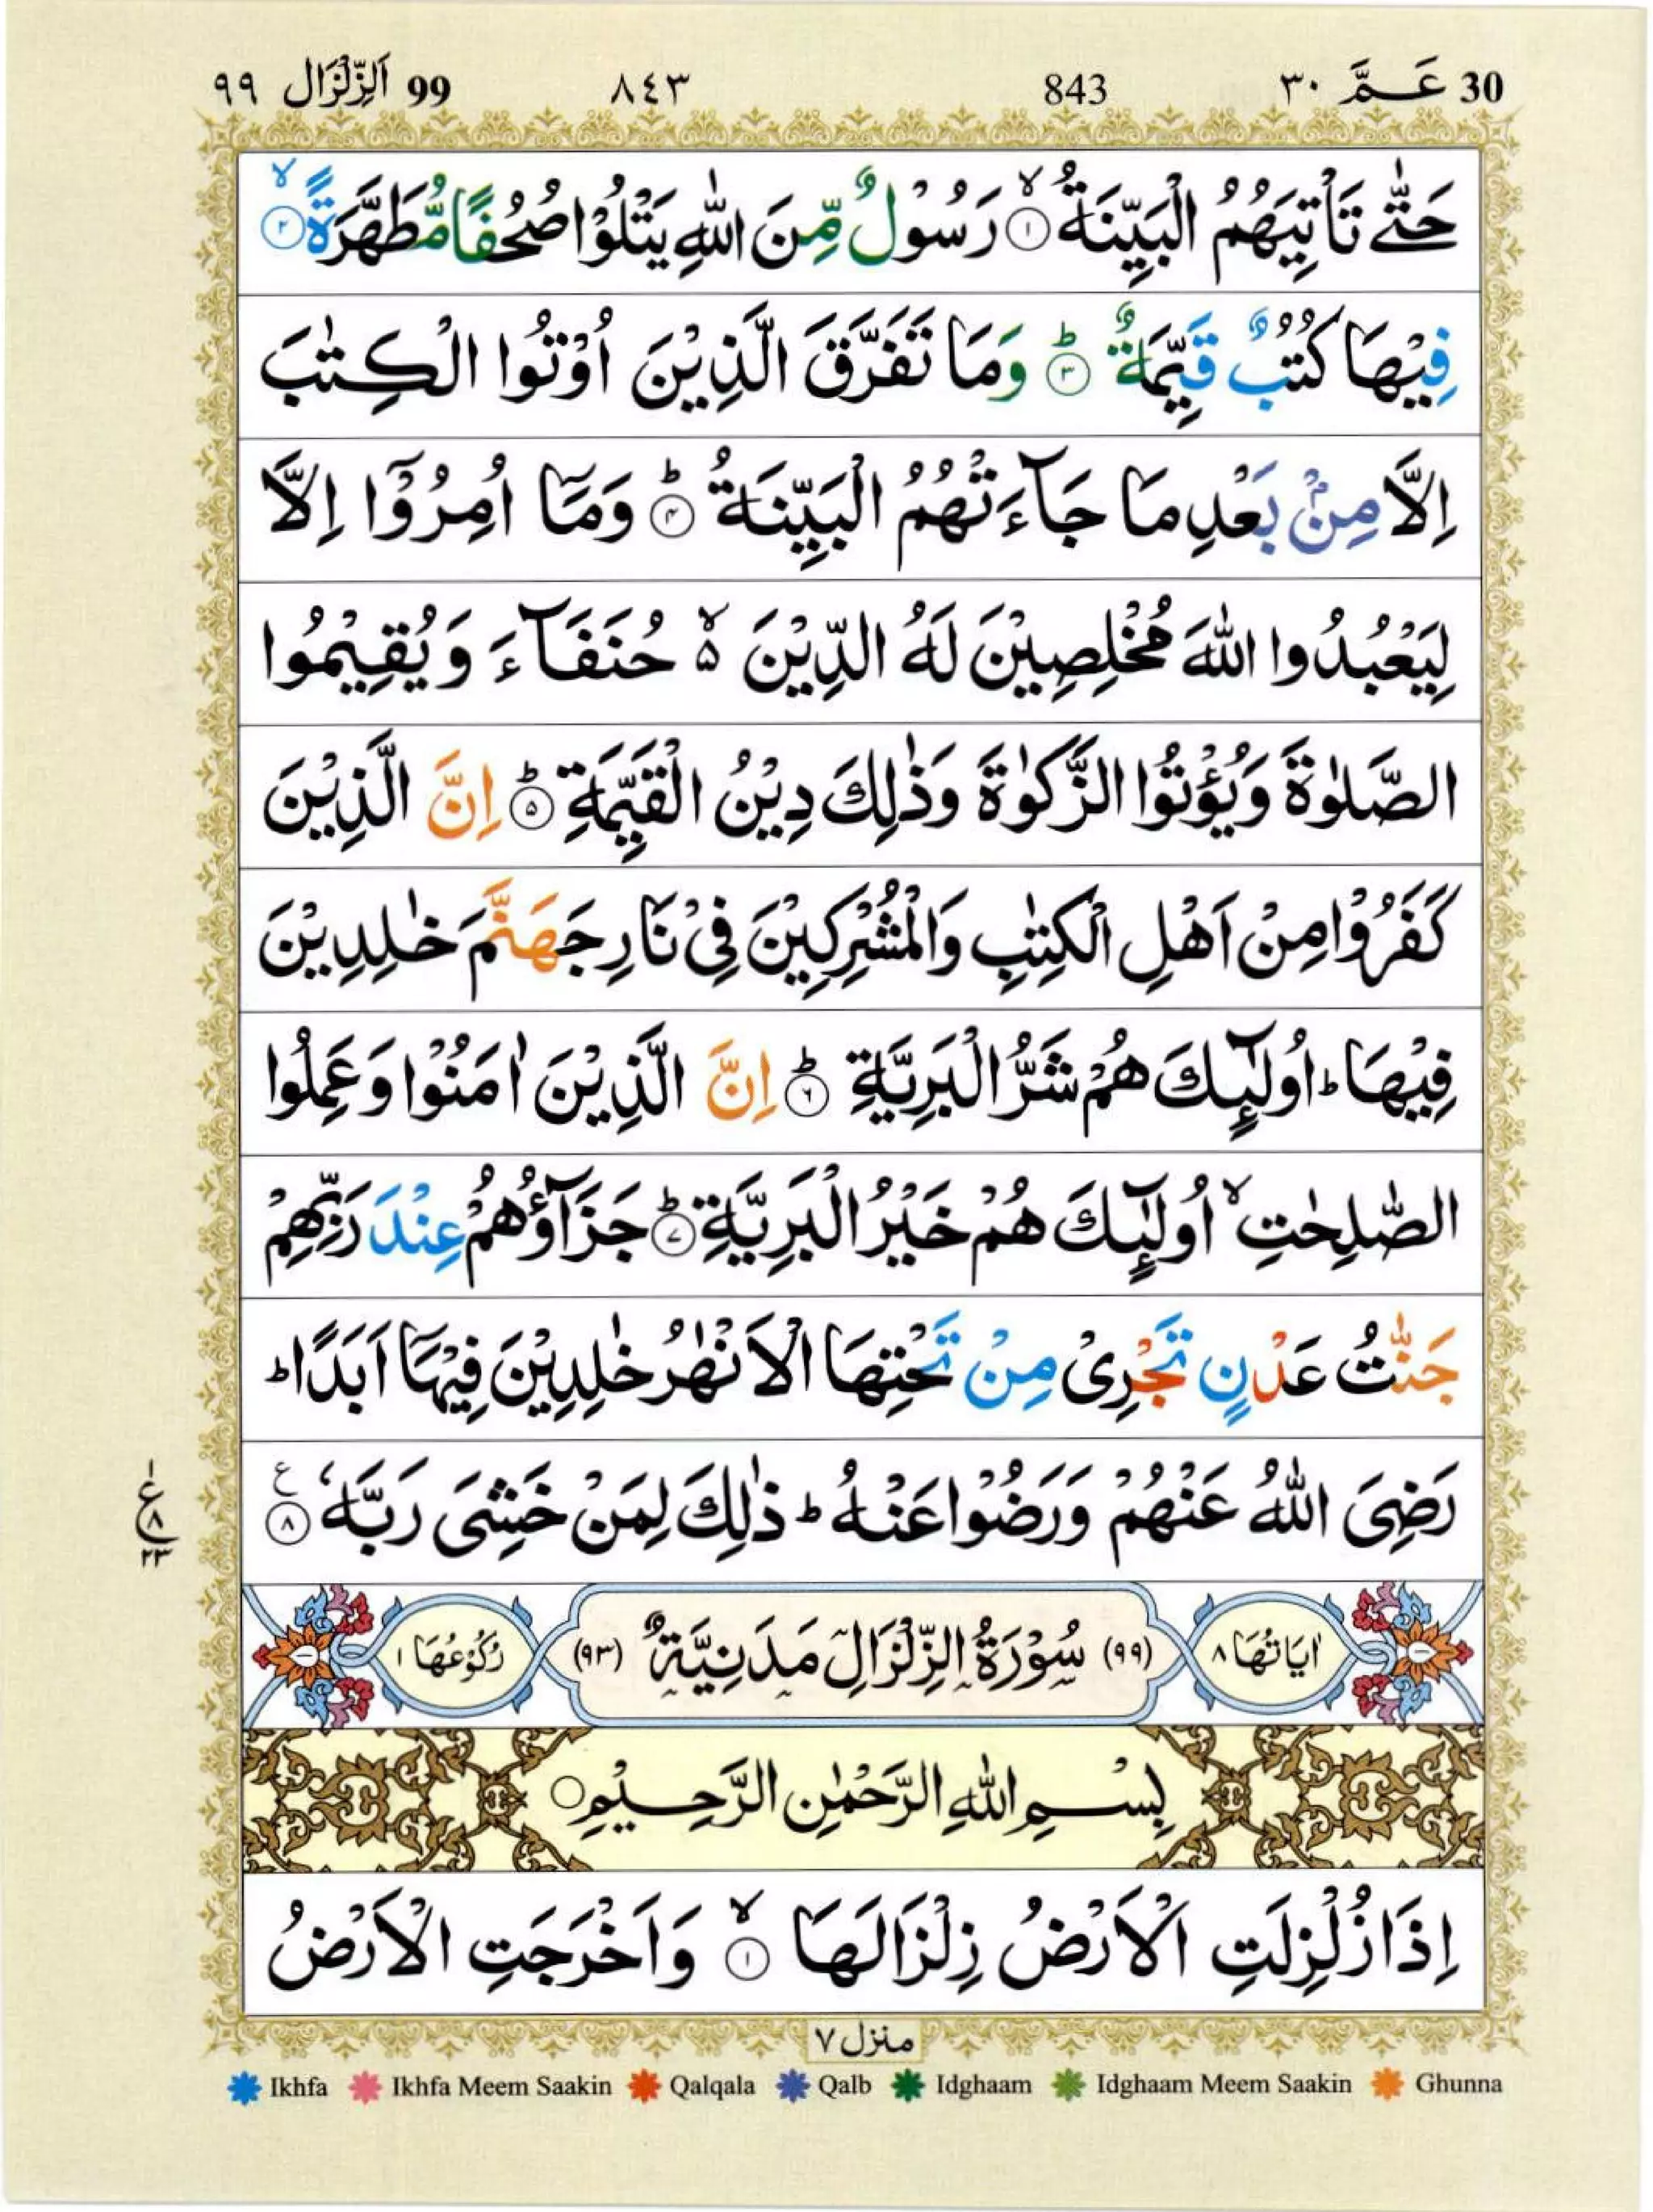 30 عَـمَّ ٣٠ 843 ٨٤٣ 99 اَلزِّلْزَال ٩٩
حَتّٰى تَاْتِيَهُمُ الْبَيِّنَةُ ۙ‏ ﴿۱﴾ رَسُوْلٌ مِّنَ اللّٰهِ يَتْلُوْا صُحُفًا مُّطَهَّرَةً ۙ‏ ﴿۲﴾
فِيْهَا كُتُبٌ قَيِّمَةٌ ؕ‏ ﴿۳﴾ وَمَا تَفَرَّقَ الَّذِيْنَ اُوْتُوا الْكِتٰبَ
اِلَّا مِنْۢ بَعْدِ مَا جَآءَتْهُمُ الْبَيِّنَةُ ؕ‏ ﴿۴﴾ وَمَاۤ اُمِرُوْۤا اِلَّا
لِيَعْبُدُوا اللّٰهَ مُخْلِصِيْنَ لَهُ الدِّيْنَ ۙ۵ حُنَفَآءَ وَيُقِيْمُوا
الصَّلٰوةَ وَيُؤْتُوا الزَّكٰوةَ وَذٰلِكَ دِيْنُ الْقَيِّمَةِ ؕ‏ ﴿۵﴾ اِنَّ الَّذِيْنَ
كَفَرُوْا مِنْ اَهْلِ الْكِتٰبِ وَالْمُشْرِكِيْنَ فِىْ نَارِ جَهَنَّمَ خٰلِدِيْنَ
فِيْهَا ؕ اُولٰٓٮِٕكَ هُمْ شَرُّ الْبَرِيَّةِ ؕ‏ ﴿۶﴾ اِنَّ الَّذِيْنَ اٰمَنُوْا وَعَمِلُوا
الصّٰلِحٰتِ ۙ اُولٰٓٮِٕكَ هُمْ خَيْرُ الْبَرِيَّةِ ؕ‏ ﴿۷﴾ جَزَآؤُهُمْ عِنْدَ رَبِّهِمْ
جَنّٰتُ عَدْنٍ تَجْرِىْ مِنْ تَحْتِهَا الْاَنْهٰرُ خٰلِدِيْنَ فِيْهَاۤ اَبَدًا ؕ
رَضِىَ اللّٰهُ عَنْهُمْ وَرَضُوْا عَنْهُ ؕ ذٰلِكَ لِمَنْ خَشِىَ رَبَّهٗ ﴿۸﴾ ع
ع ۱ ۸ ۲۳
اٰيَاتُهَا ٨ (٩٩) سُوْرَةُ الزِّلْزَالِ مَدَنِيَّةٌ (٩٣) رُكُوْعُهَا ١
بِسْــمِ اللّٰهِ الرَّحْمٰنِ الرَّحِـيْمِ
اِذَا زُلْزِلَتِ الْاَرْضُ زِلْزَالَهَا ۙ‏ ﴿۱﴾ وَاَخْرَجَتِ الْاَرْضُ
منزل ٧
Ikhfa Ikhfa Meem Saakin Qalqala Qalb Idghaam Idghaam Meem Saakin Ghunna